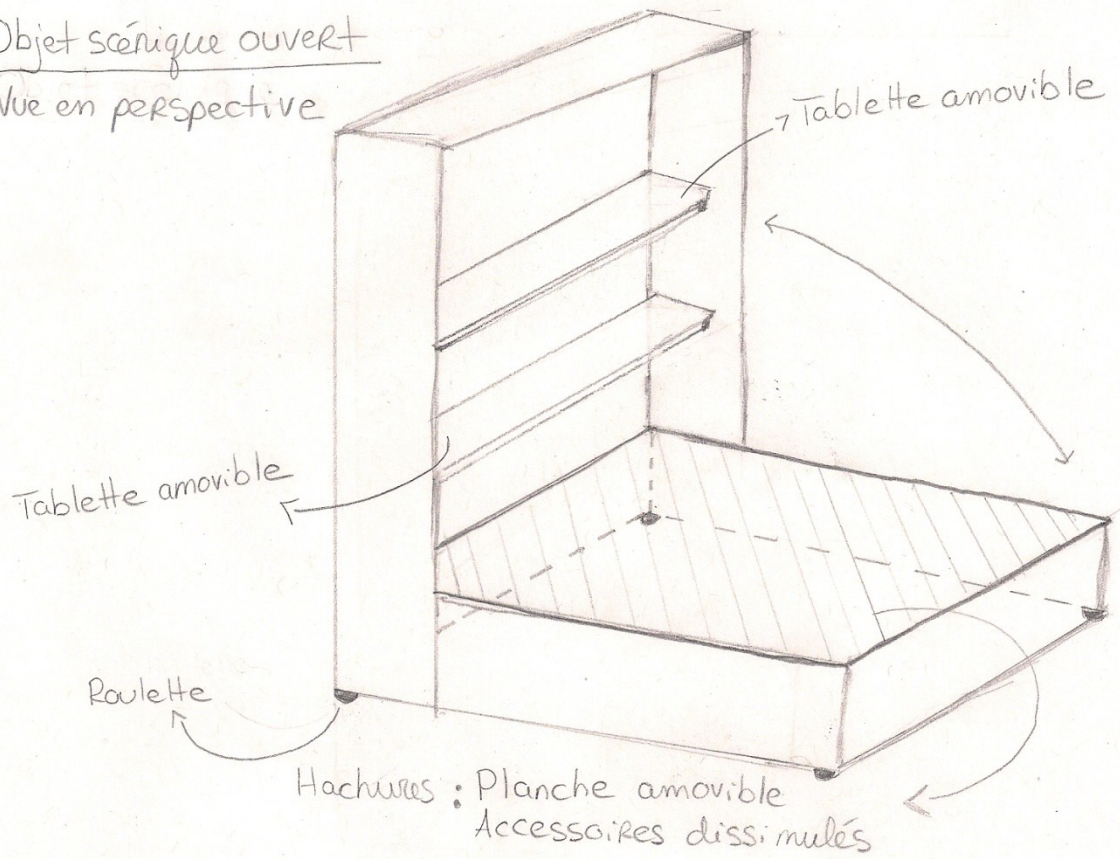 Objet scénique ouvert
Vue en perspective
Tablette amovible
Tablette amovible
Roulette
Hachures : Planche amovible
Accessoires dissimulés